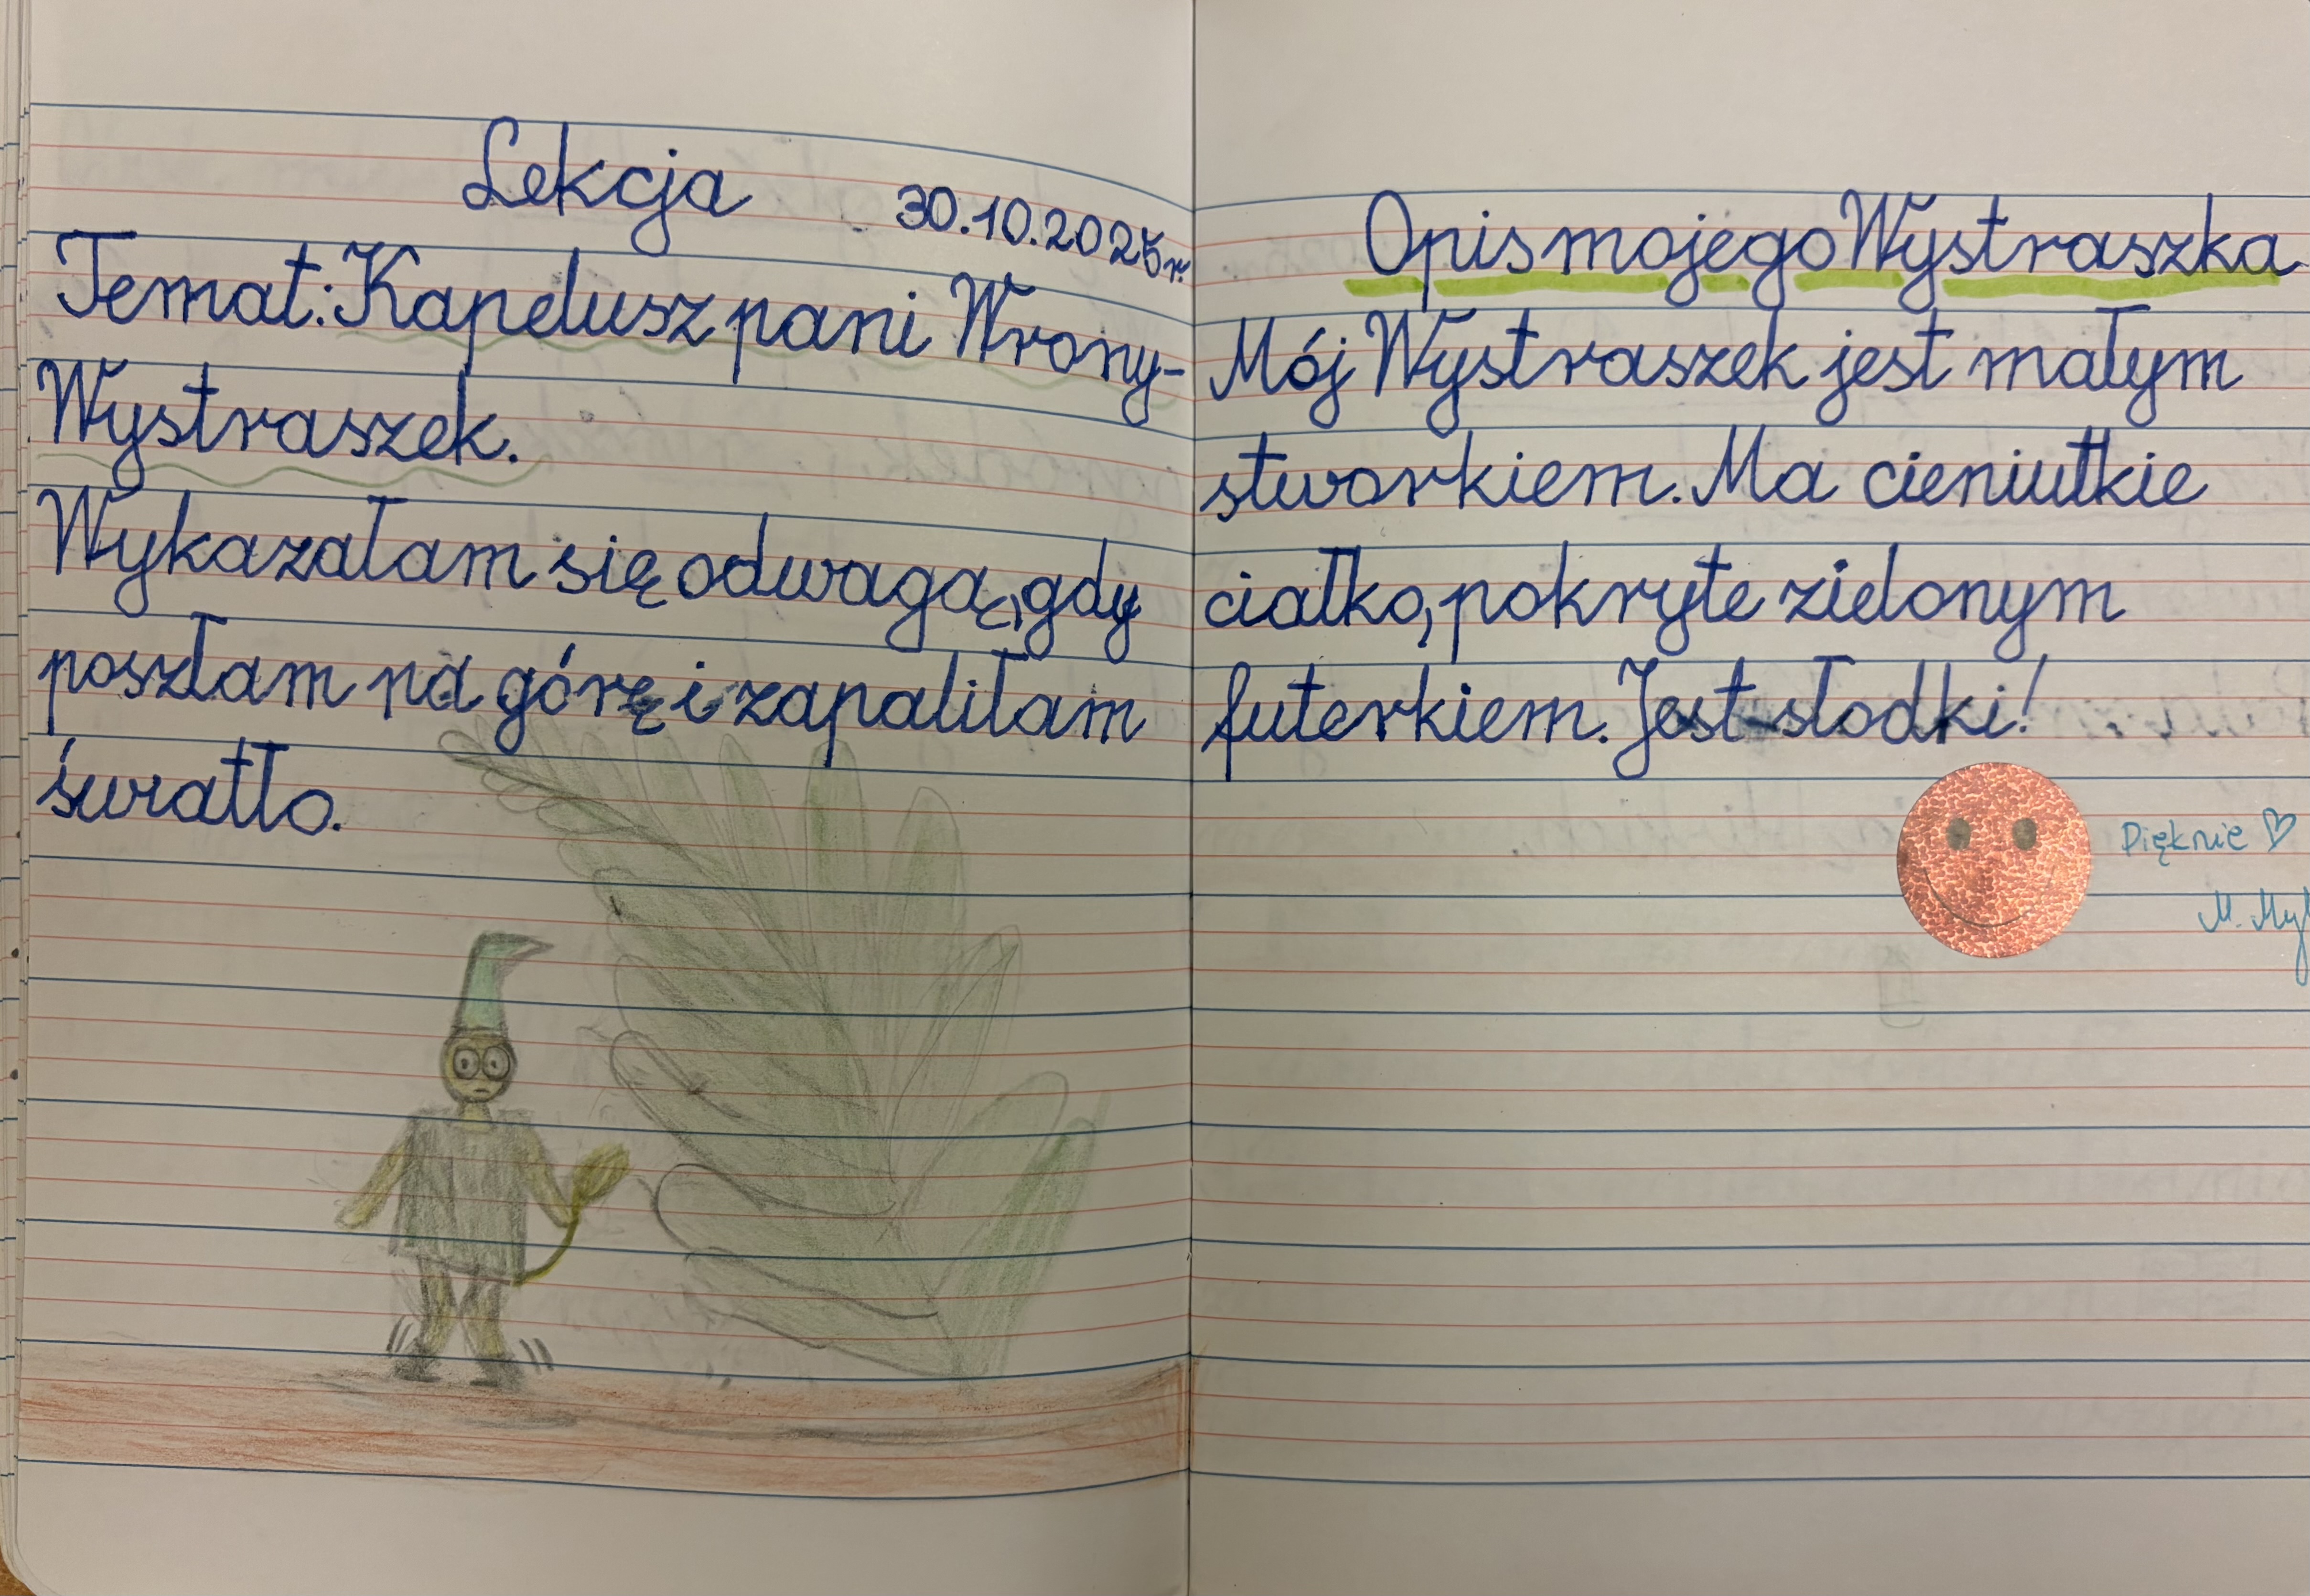 Lekcja
30.10.2025r.
Temat: Kapelusz pani Wrony-
Wystraszek.
Wykazałam się odwagą, gdy
poszłam na górę i zapaliłam
światło.
Opis mojego Wystraszka
Mój Wystraszek jest małym
stworkiem. Ma cieniutkie
ciałko, pokryte zielonym
futerkiem. Jest słodki!
Pięknie ♡
M.